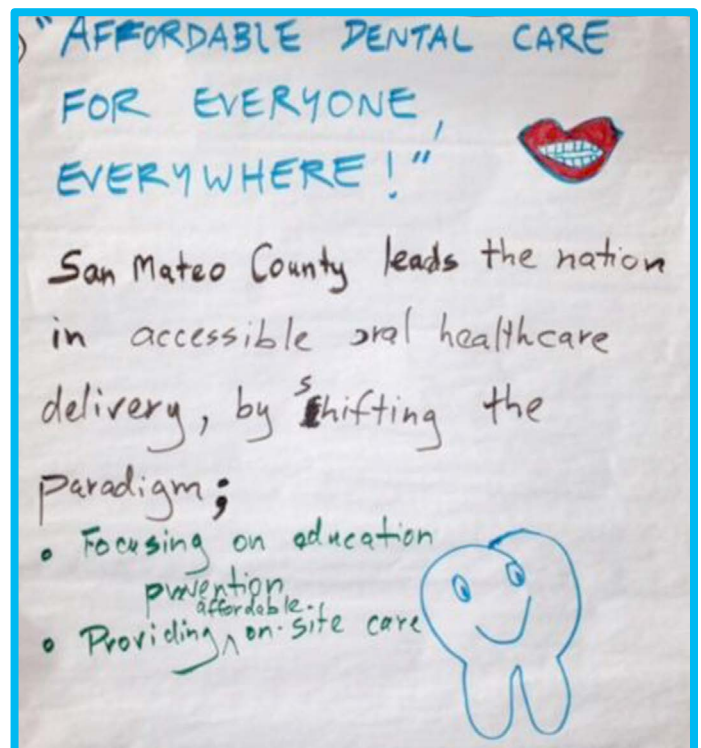 "AFFORDABLE DENTAL CARE
FOR EVERYONE,
EVERYWHERE!"
San Mateo County leads the nation
in accessible oral healthcare
delivery, by shifting the
paradigm;
• Focusing on education
prevention
• Providing ^ affordable on-site care